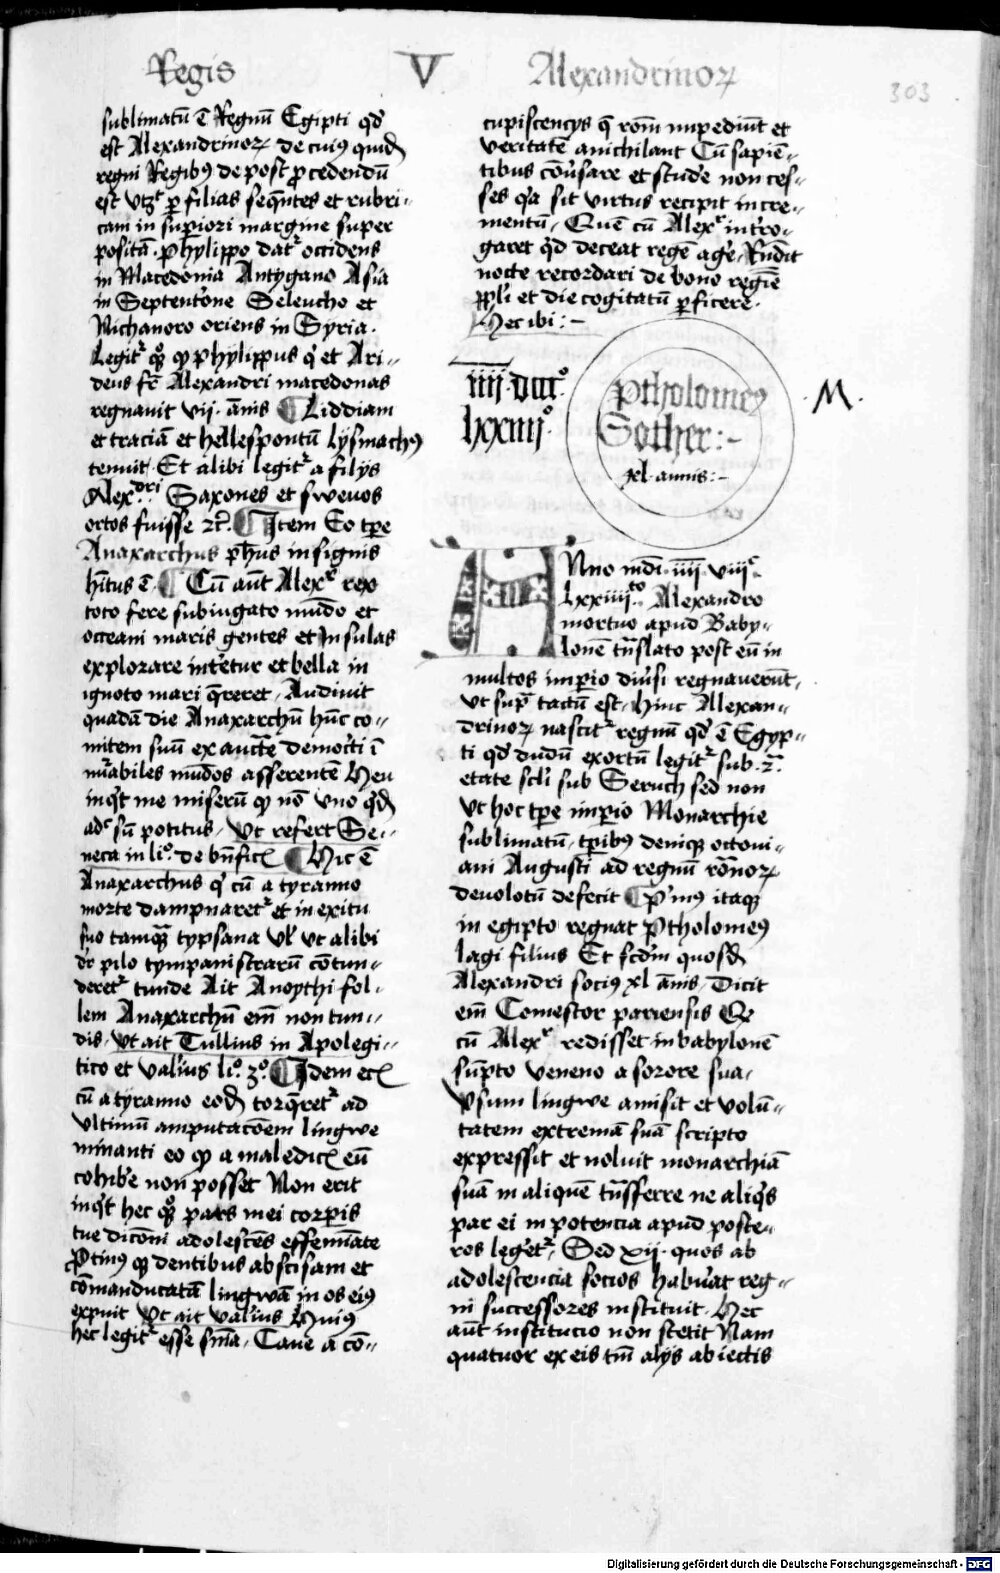 Regis V Alexandrinoꝝ
303
sublimatū ē Regnū Egipti qd̄
est Alexandrinoꝝ de cuiꝰ quidē
regni Regibꝰ de post ꝓcedendū
est vtꝫ ꝑ filias seqn̄tes et rubri-
cam in suꝑiori margine super
positā. Phylippo datʳ occidens
in Macedonia Antygano Asia
in Septentōne Seleucho et
Nichanoro oriens in Syria.
Legitʳ qꝫ ꝙ phylippus qi et Ari-
deus fr̄ Alexandri macedonas
regnauit vij. ānis ¶ Liddiam
et traciā et hellespontū lysmachꝰ
tenuit. Et alibi legitʳ a filijs
Alexdri Saxones et swevos
ortos fuisse ꝛc̄. ¶ Item Eo tp̄e
Anaxarchus ph̄us insignis
hītus ē. ¶ Cū aūt Alexʳ rex
toto fere subiugato mūdo et
occeani maris gentes et Insulas
explorare intēetur et bella in
ignoto mari q̄reret. Audiuit
quadā die Anaxarchū hūc co-
mitem suū ex auctē democ̄ti ī
inūabiles mūdos asserentē Heu
inqt me miserū ꝙ nō vno qd̄
adc̄ sū potitus. Vt refert Se-
neca in lio. de bn̄ficꝭ ¶ Hic ē
Anaxarchus qi cū a tyranno
morte dampnaretʳ et in exitu
suo tamqā typsana vl̄ vt alibi
dr̄ pilo tympanistrarū cōtun-
deretʳ tunde Ait Anoythi fol-
lem Anaxarchū em̄ non tun-
dis. Vt ait Tullius in Apolegi-
tico et valīus lio. 3o. ¶ Idem ecꝭ
cū a tyranno eod̄ torq̄retʳ ad
vltimū amputacōem lingwe
minanti eo ꝙ a maledicꝭ eū
cohib̄e non posset Non erit
inqt hec qꝫ pars mei corꝑis
tue dicōni adolescēs effemīate
Ptinꝰ qꝫ dentibus abscisam et
cōmanducatā lingwā in os eiꝰ
expuit Vt ait valīus Huiꝰ
hec legitʳ esse sn̄ia. Caue a cō-
cupiscencijs q̄ rōm impediūt et
veritatē anichilant Cū sapiē-
tibus cōūsare et stud̄e non ces-
ses qa sit virtus recipit incre-
mentū. Quē cū Alexʳ intro-
garet qd̄ deceat regē age. Rn̄dit
nocte recordari de bono regiē
ppl̄i et die cogitatū ꝑficere.
Hec ibi :-
iiij. viijc.
lxxiiij.
Ptholomeꝰ
Sother :-
xl. annis :-
. M .
Anno mdi. iiij. viijc
Lxxiiijto Alexandro
mortuo apud Baby-
lonē tn̄slato post eū in
multos imꝑio diūsi regnauerūt.
Vt supa tactū est. hinc Alexan-
drinoꝝ nascitʳ regnū qd̄ ē Egyp-
ti qd̄ dudū exortū legitʳ sub. 2a.
etate scl̄i sub Seruch sed non
Vt hoc tp̄e imꝑio Monarchie
sublimatū. tp̄ibꝰ deniqꝫ octoui-
ani Augusti ad regnū rōnoꝝ
deuolutū defecit ¶ P'mꝰ itaqꝫ
in egipto regnat Ptholomeꝰ
Lagi filius Et scd̄m quosd̄
Alexandri sociꝰ xl ānis. Dicit
em̄ Comestor pariensis Qꝫ
cū Alexʳ redisset in babylonē
sūpto veneno a sorore sua.
Vsum lingwe amisit et volū-
tatem extremā suā scripto
expressit et noluit monarchiā
suā in aliquē tn̄sferre ne aliqis
par ei in potencia apud poste-
ros leget̄ʳ. Sed xij. quos ab
adolescencia socios habūat reg-
ni successores instituit. Hec
aūt institucio non stetit Nam
quatuor ex eis tm̄ alijs abiectis
Digitalisierung gefördert durch die Deutsche Forschungsgemeinschaft - DFG